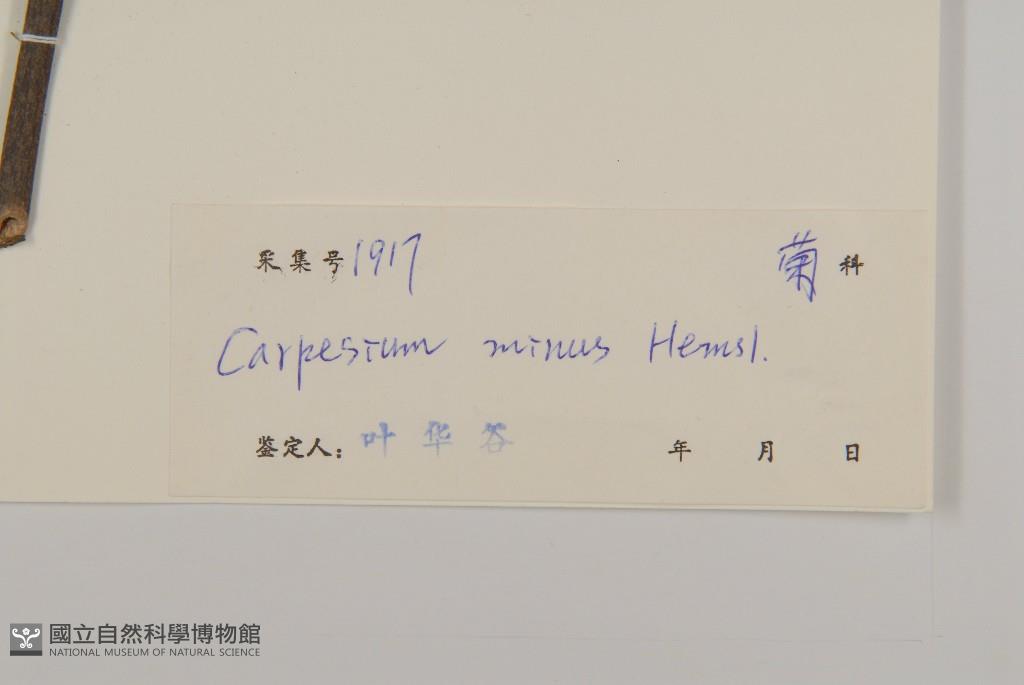 采集号 1917 菊 科
Carpesium minus Hemsl.
鉴定人: 叶华谷 年 月 日
國立自然科學博物館
NATIONAL MUSEUM OF NATURAL SCIENCE